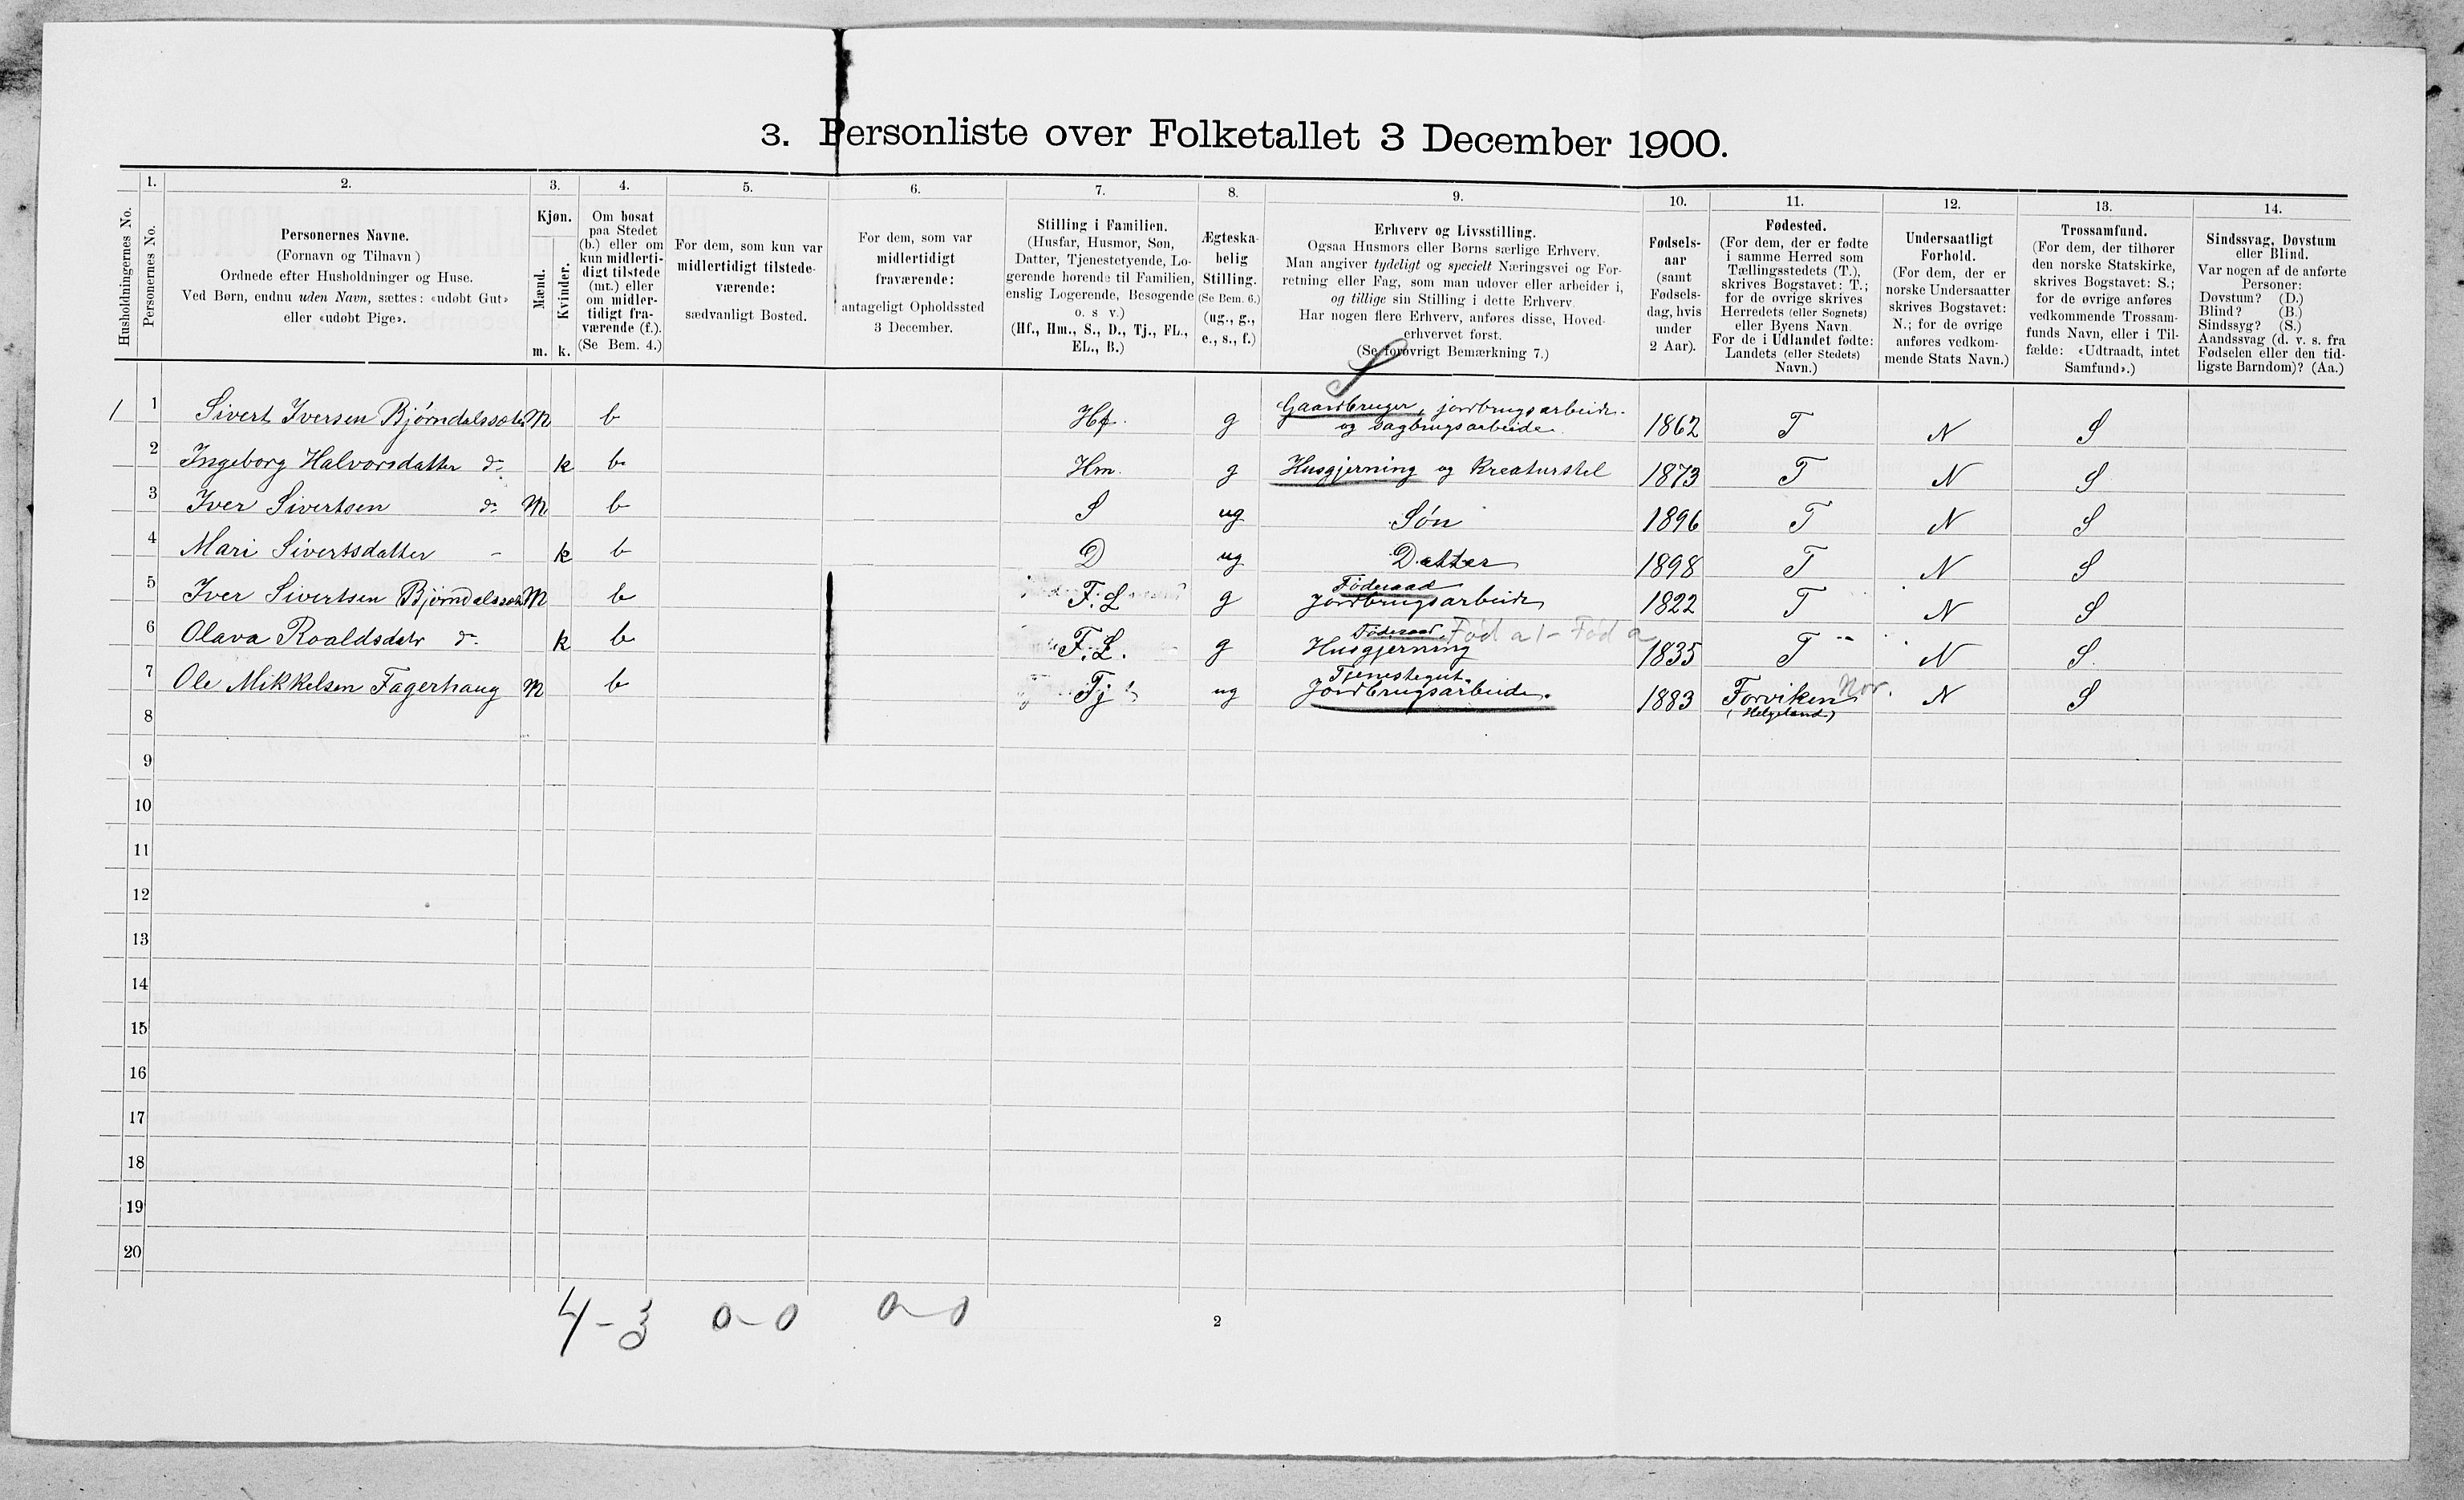 3. Personliste over Folketallet 3 December 1900.
1. 2. 3. 4. 5. 6. 7. 8. 9. 10. 11. 12. 13. 14.
Husholdningernes No.
Personernes No.
Personernes Navne.
(Fornavn og Tilnavn)
Ordnede efter Husholdninger og Huse.
Ved Børn, endnu uden Navn, sættes: «udøbt Gut»
eller «udøbt Pige».
Kjøn.
Mænd.
Kvinder.
m. k.
Om bosat
paa Stedet
(b.) eller om
kun midlerti-
digt tilstede
(mt.) eller
om midler-
tidigt fra-
værende (f.).
(Se Bem. 4.)
For dem, som kun var
midlertidigt tilstede-
værende:
sædvanligt Bosted.
For dem, som var
midlertidigt
fraværende:
antageligt Opholdssted
3 December.
Stilling i Familien.
(Husfar, Husmor, Søn,
Datter, Tjenestetyende, Lo-
gerende hørende til Familien,
enslig Logerende, Besøgende
o. s. v.)
(Hf., Hm., S., D., Tj., FL.,
EL., B.)
Ægteska-
belig
Stilling.
(Se Bem. 6.)
(ug., g.,
e., s., f.)
Erhverv og Livsstilling.
Ogsaa Husmors eller Børns særlige Erhverv.
Man angiver tydeligt og specielt Næringsvei og For-
retning eller Fag, som man udøver eller arbeider i,
og tillige sin Stilling i dette Erhverv.
Har nogen flere Erhverv, anføres disse, Hoved-
erhvervet først.
(Se forøvrigt Bemærkning 7.)
Fødsels-
aar
(samt
Fødsels-
dag, hvis
under
2 Aar).
Fødested.
(For dem, der er fødte
i samme Herred som
Tællingsstedets (T.),
skrives Bogstavet: T.;
for de øvrige skrives
Herredets (eller Sognets)
eller Byens Navn.
For de i Udlandet fødte:
Landets (eller Stedets)
Navn.)
Undersaatligt
Forhold.
(For dem, der er
norske Undersaatter
skrives Bogstavet:
N.; for de øvrige
anføres vedkom-
mende Stats Navn.)
Trossamfund.
(For dem, der tilhører
den norske Statskirke,
skrives Bogstavet: S.;
for de øvrige anføres
vedkommende Trossam-
funds Navn, eller i Til-
fælde: «Udtraadt, intet
Samfund».)
Sindssvag, Døvstum
eller Blind.
Var nogen af de anførte
Personer:
Døvstum? (D.)
Blind? (B.)
Sindssyg? (S.)
Aandssvag (d. v. s. fra
Fødselen eller den tid-
ligste Barndom)? (Aa.)
1 1 Sivert Iversen Bjørndalssæter M b Hf. g Gaardbruger, jordbrugsarbeide. og sagbrugsarbeide 1862 T N S
2 Ingeborg Halvorsdatter do k b Hm. g Husgjerning og Kreaturstel 1873 T N S
3 Iver Sivertsen do M b S ug Søn 1896 T N S
4 Mari Sivertsdatter - k b D ug Datter 1898 T N S
5 Iver Sivertsen Bjørndalssæter M b F.L g Føderaad Jordbrugsarbeide 1822 T N S
6 Olava Roaldsdatr do k b F.L. g Føderaad Husgjerning Fød a 1835 T N S
7 Ole Mikkelsen Fagerhaug M b Tj ug Tjenestegut Jordbrugsarbeide. 1883 Forviken (Helgeland) Nor. N S
8
9
10
11
12
13
14
15
16
17
18
19
20
4 - 3 0 - 0 0 - 0
2